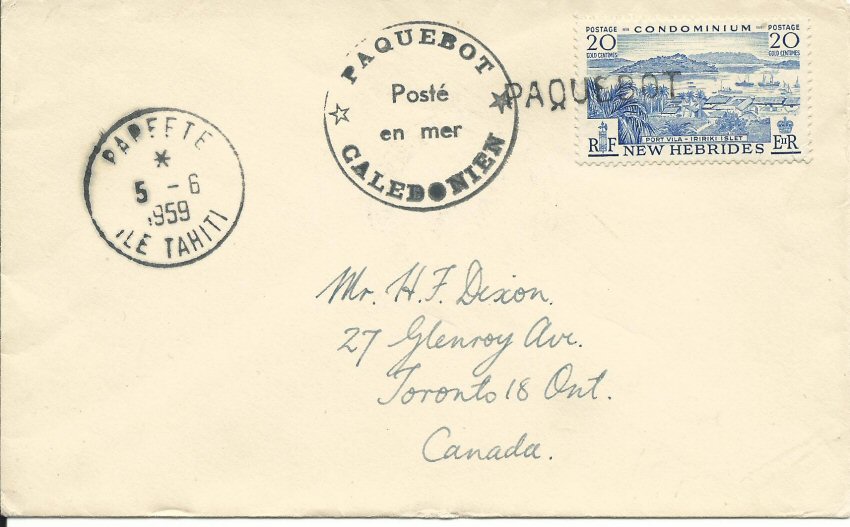 PAQUEBOT
Posté
en mer
CALEDONIEN
PAQUEBOT
POSTAGE CONDOMINIUM POSTAGE
20 20
GOLD CENTIMES GOLD CENTIMES
PORT VILA - IRIRIKI ISLET
RF NEW HEBRIDES EIIR
PAPEETE
5 - 6
1959
ILE TAHITI
Mr. H.F. Dixon.
27 Glenroy Ave.
Toronto 18 Ont.
Canada.